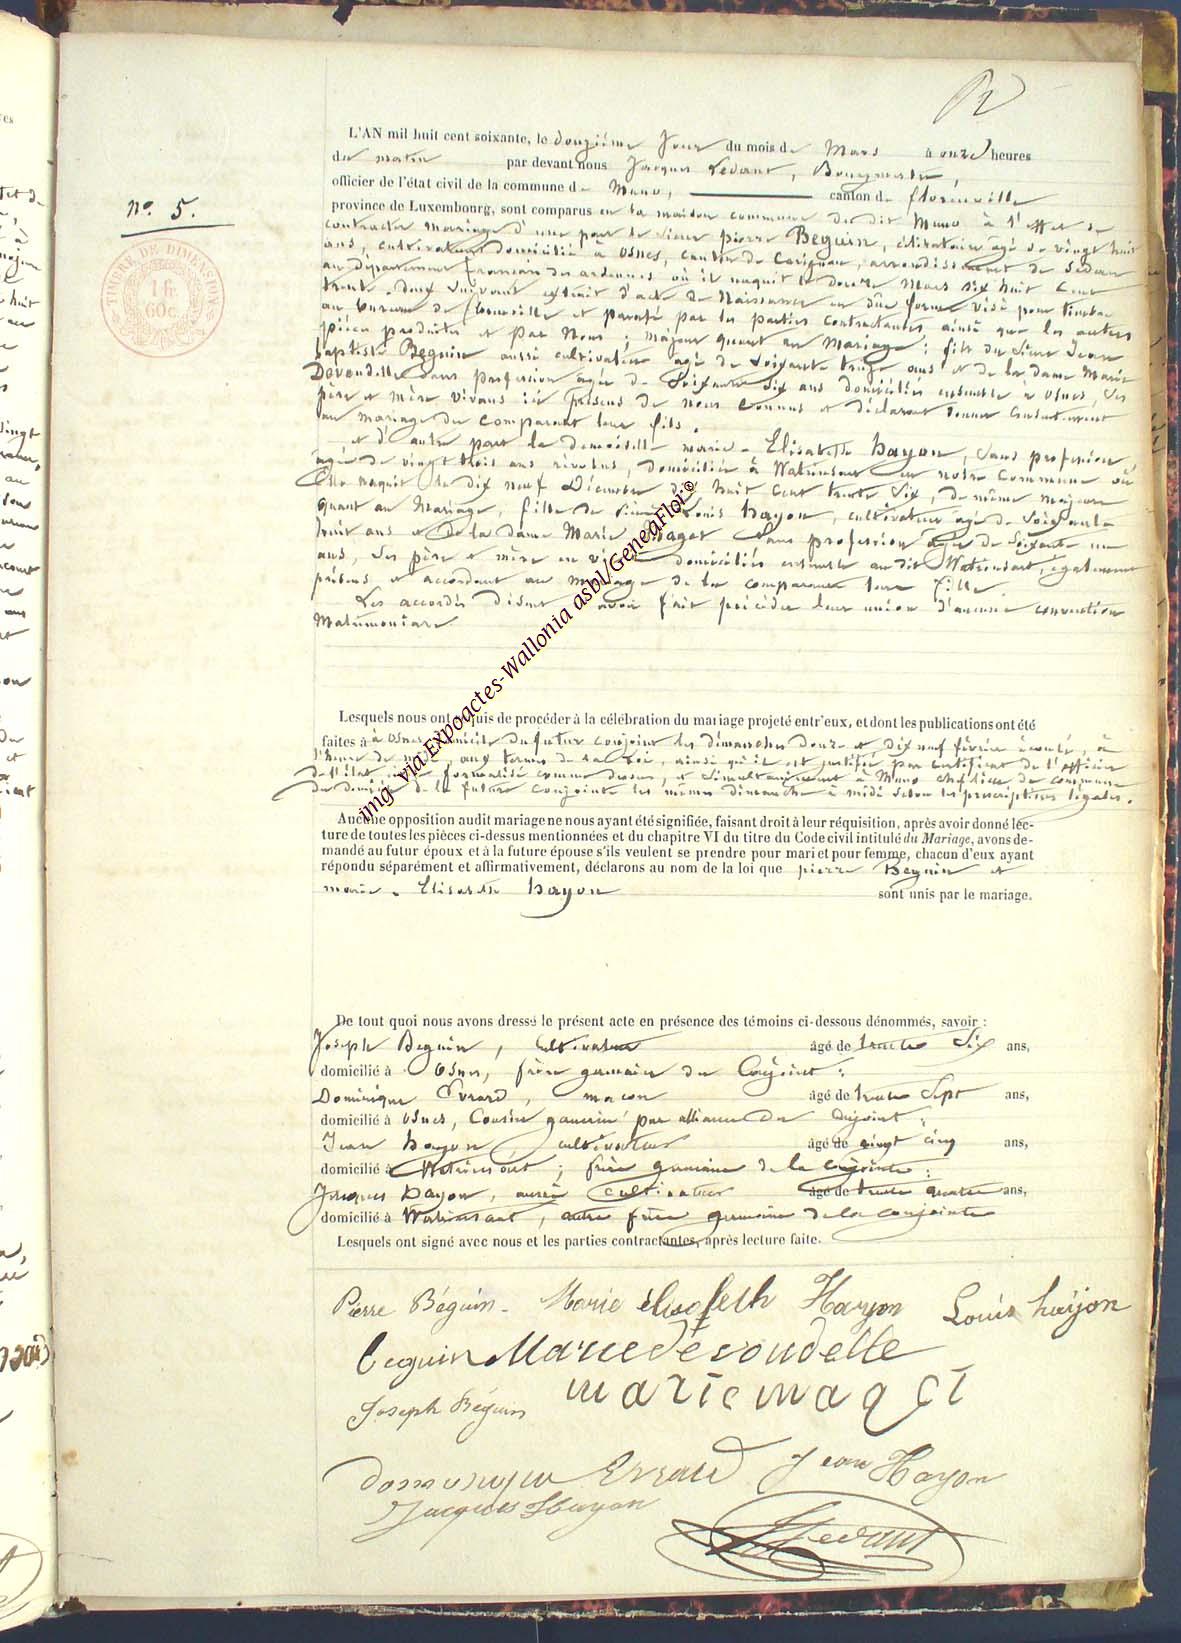 L'AN mil huit cent soixante, le douzième Jour du mois de Mars à onze heures
du matin par devant nous Jacques Levant, Bourgmestre,
officier de l'état civil de la commune de Muno, canton de florenville
province de Luxembourg, sont comparus en la maison commune du dit Muno à l'effet de
N° 5.
contracter mariage d'une part le sieur pierre Beguin, célibataire agé de vingt huit
ans, cultivateur domicilié à Osnes, canton de Carignan, arrondissement de Sedan
au département français des ardennes où il naquit le douze Mars dix huit cent
trente-deux suivant extrait d'acte de Naissance en due forme visé pour timbre
au bureau de florenville et paraphé par les parties contractantes ainsi que les autres
pièces produites et par Nous ; majeur quant au mariage : fils du sieur Jean
baptiste Beguin aussi cultivateur agé de soixante treize ans et de la dame Marie
Devondelle sans profession agée de Soixante six ans domiciliés ensemble à Osnes, ses
père et mère vivans ici présens de nous connus et déclarant donner consentement
au mariage du comparant leur fils.
et d'autre part la demoiselle marie-Elisabeth hayon, sans profession,
agée de vingt trois ans révolus, domiciliée à Watrinsart en notre commune où
Elle naquit le dix neuf Décembre dix huit cent trente six, de même majeure
quant au Mariage, fille de sieur Louis hayon, cultivateur agé de soixante
huit ans et de la dame Marie Maget sans profession agée de soixante un
ans, ses père et mère en vie domiciliés ensemble au dit Watrinsart, également
présens et accordant au mariage de la comparante leur fille.
Les accordés disent avoir fait précéder leur union d'aucune convention
Matrimoniale.
Lesquels nous ont requis de procéder à la célébration du mariage projeté entr'eux, et dont les publications ont été
faites à à Osnes domicile du futur conjoint les dimanches douze et dix neuf février écoulé, à
l'heure de midi, aux termes de la loi, ainsi qu'il est justifié par certificat de l'officier
de l'état civil formalisé comme dessus, et simultanément à Muno chef lieu de commune
du domicile de la future conjointe les mêmes dimanches à midi selon les prescriptions légales.
Aucune opposition audit mariage ne nous ayant été signifiée, faisant droit à leur réquisition, après avoir donné lec-
ture de toutes les pièces ci-dessus mentionnées et du chapitre VI du titre du Code civil intitulé du Mariage, avons de-
mandé au futur époux et à la future épouse s'ils veulent se prendre pour mari et pour femme, chacun d'eux ayant
répondu séparément et affirmativement, déclarons au nom de la loi que pierre Beguin et
marie-Elisabeth hayon sont unis par le mariage.
De tout quoi nous avons dressé le présent acte en présence des témoins ci-dessous dénommés, savoir :
Joseph Beguin, cultivateur âgé de trente six ans,
domicilié à Osnes, frère germain du Conjoint ;
Dominique Evrard, maçon âgé de trente sept ans,
domicilié à Osnes, Cousin germain par alliance du conjoint ;
Jean hayon, cultivateur âgé de vingt cinq ans,
domicilié à Watrinsart ; frère germain de la conjointe ;
Jacques hayon, aussi cultivateur âgé de trente quatre ans,
domicilié à Watrinsart, autre frère germain de la conjointe
Lesquels ont signé avec nous et les parties contractantes, après lecture faite.
Pierre Béguin Marie élisabeth Hayon Louis hayon
beguin Marie dévoudelle
Joseph Béguin marie maget
dominique Evrard Jean Hayon
Jacques Hayon
Levant
TIMBRE DE DIMENSION
1 fr
60 c.
img via Expoactes-Wallonia asbl/GeneaFlor ©